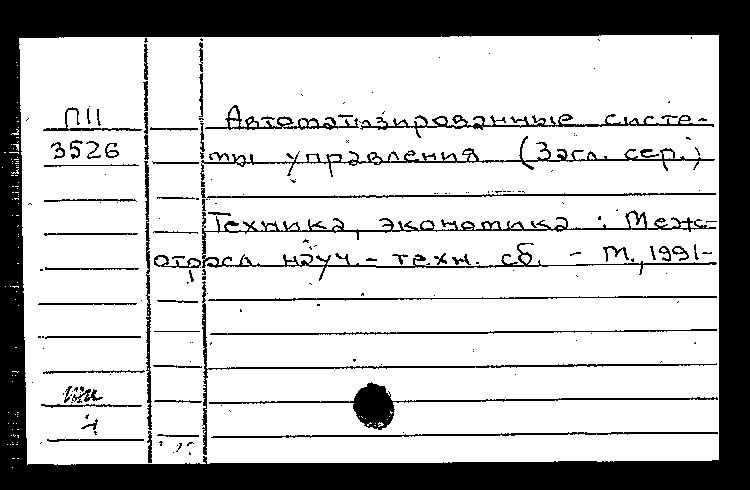 П11
3526
Автоматизированные систе-
мы управления (Загл. сер.)
Техника, экономика : Меж-
отрасл. науч.- техн. сб. - М., 1991-